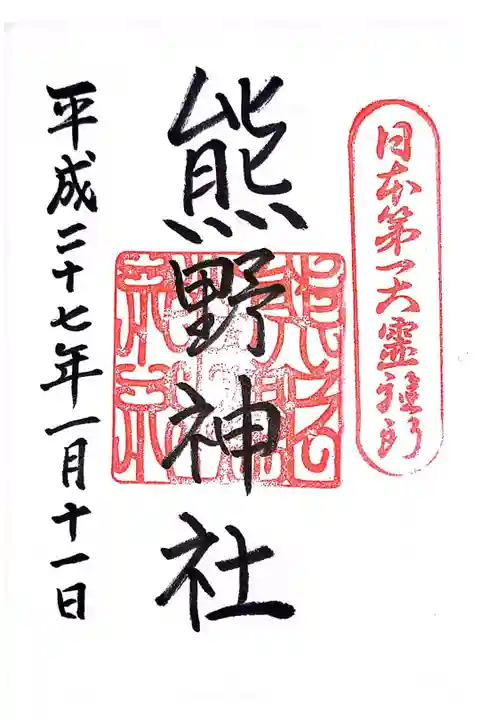 日本第一大霊験所
熊野神社
平成二十七年一月十一日